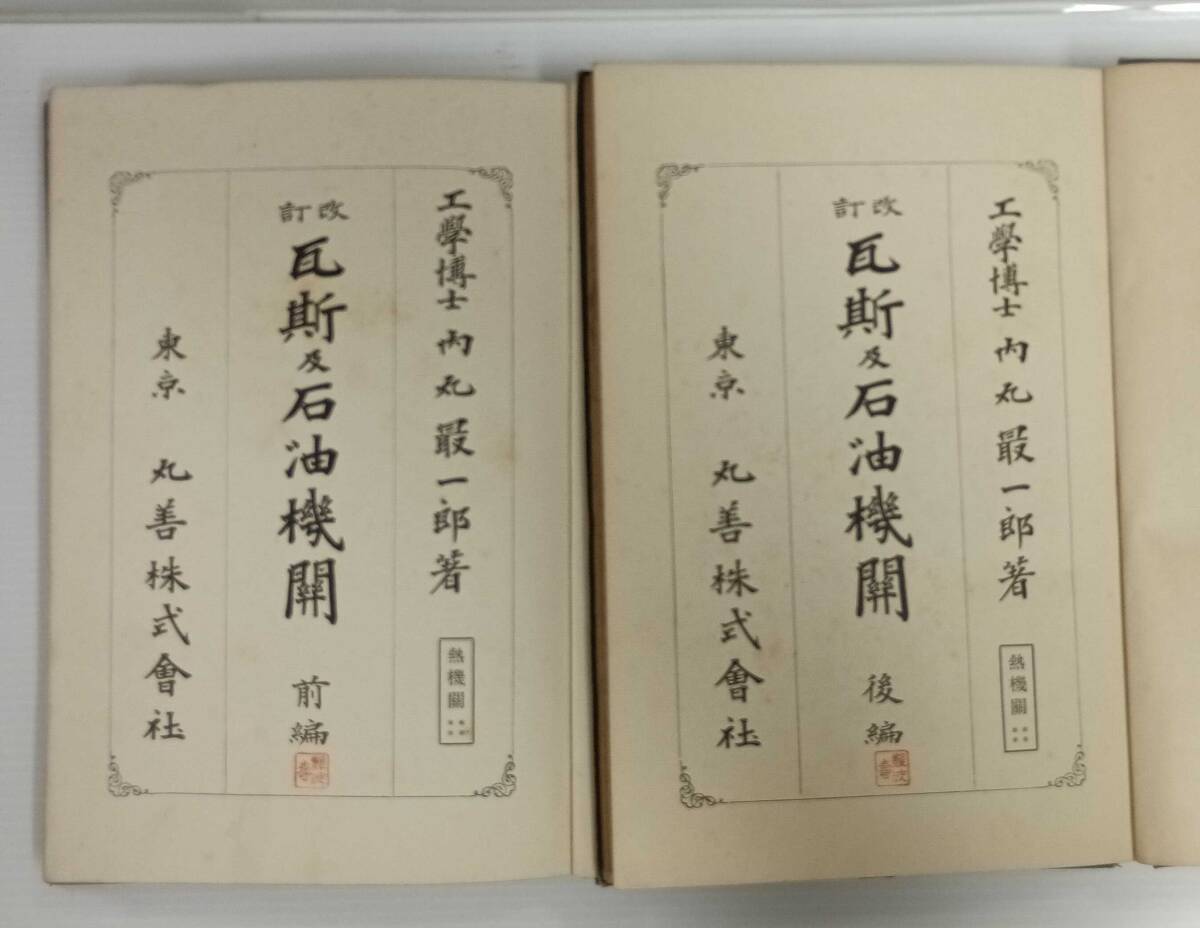 工學博士 內丸最一郎著
熱機關
改訂
瓦斯及石油機關 前編
東京 丸善株式會社
工學博士 內丸最一郎著
熱機關
改訂
瓦斯及石油機關 後編
東京 丸善株式會社